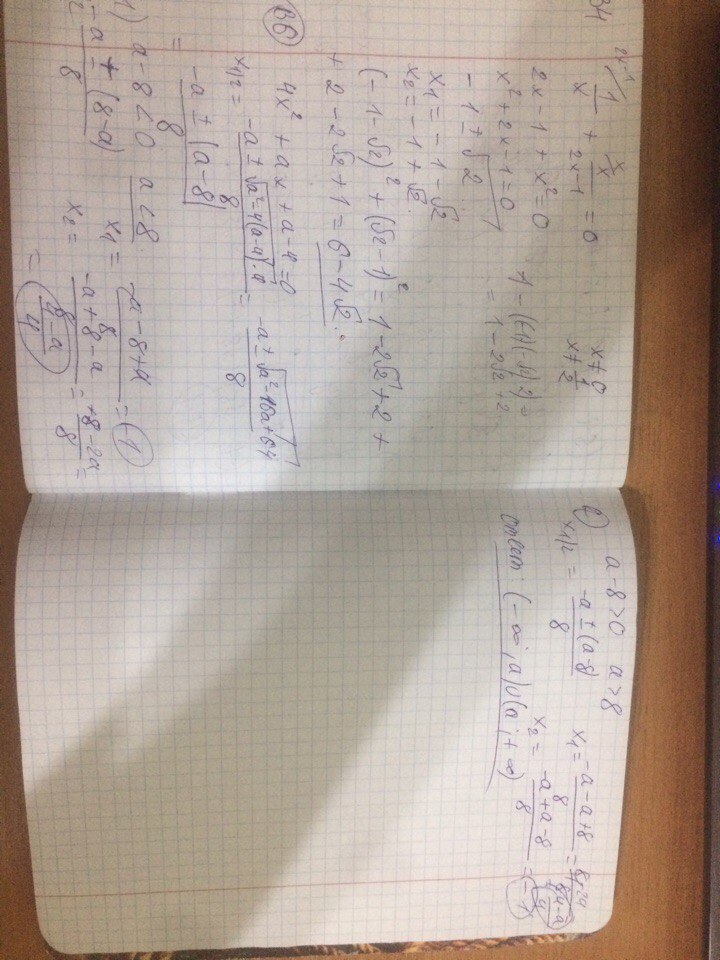 34
2x-1/ 1/x + x/ x/(2x-1) = 0
x≠0
x≠1/2
2x-1+x²=0
x²+2x-1=0
-1±√2
= 1-2√2+2
x₁=-1-√2
x₂=-1+√2
(-1-√2)²+(√2-1)²=1-2√2+2+
+2-2√2+1=6-4√2.
В6
4x²+ax+a-4=0
x₁/₂ = (-a±√(a²-4(a-4)·4))/8 = (-a±√(a²-16a+64))/8
= (-a±|a-8|)/8
1) a-8<0 a<8
(-a±(8-a))/8
x₁ = (-a-8+a)/8 = -1
x₂ = (-a+8-a)/8 = (+8-2a)/8 =
= (8-a)/4
2) a-8>0 a>8
x₁/₂ = (-a±(a-8))/8
x₁ = (-a-a+8)/8 =
x₂ = (-a+a-8)/8 = -1
Ответ: (-∞; a)∪(a; +∞)